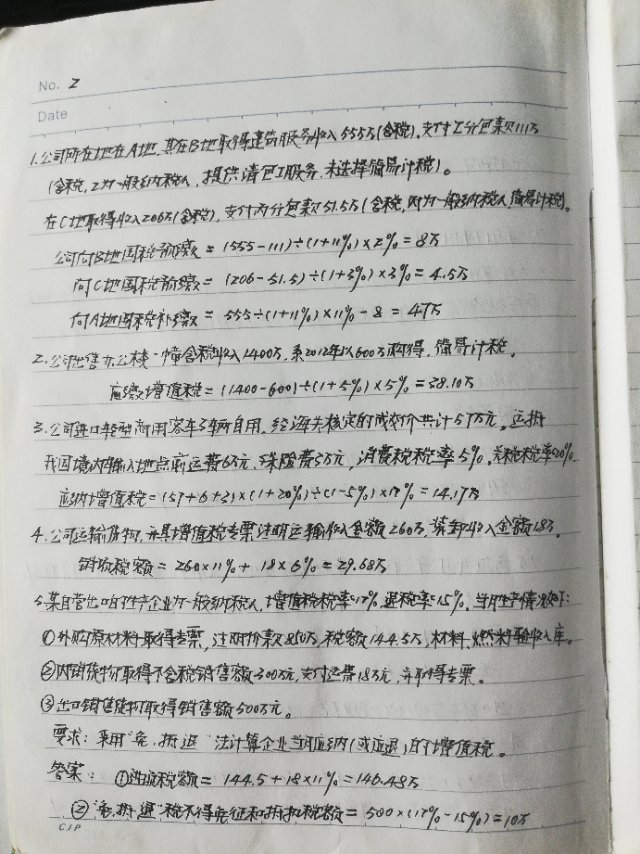 No. 2
Date
1.公司所在地在A地,其在B地取得建筑服务收入555万(含税),支付乙分包款111万
(含税,乙为一般纳税人,提供清包工服务,未选择简易计税)。
在C地取得收入206万(含税),支付丙分包款51.5万(含税,丙为一般纳税人,简易计税)。
公司向B地国税预缴款=(555-111)÷(1+11%)×2%=8万
向C地国税预缴款=(206-51.5)÷(1+3%)×3%=4.5万
向A地国税补缴款=555÷(1+11%)×11%-8=47万
2.公司出售办公楼一幢含税收入1400万,系2012年以600万购得,简易计税。
应缴增值税=(1400-600)÷(1+5%)×5%=38.10万
3.公司进口轻型商用客车3辆自用,经海关核定的成交价共计57万元,运抵
我国境内输入地点前运费6万元,保险费3万元,消费税税率5%,关税税率20%
应纳增值税=(57+6+3)×(1+20%)÷(1-5%)×17%=14.17万
4.公司运输货物,开具增值税专票注明运输收入金额260万,装卸收入金额18万
销项税额=260×11%+18×6%=29.68万
5.某自营出口的生产企业为一般纳税人,增值税税率17%,退税率15%。当月生产情况如下:
①外购原材料取得专票,注明价款850万,税额144.5万,材料、燃料验收入库。
②内销货物取得不含税销售额300万元,支付运费18万元,并取得专票。
③出口销售货物取得销售额500万元。
要求:采用"免、抵、退"法计算企业当月应纳(或应退)的增值税。
答案:①进项税额=144.5+18×11%=146.48万
②"免、抵、退"税不得免征和抵扣税额=500×(17%-15%)=10万
CJP